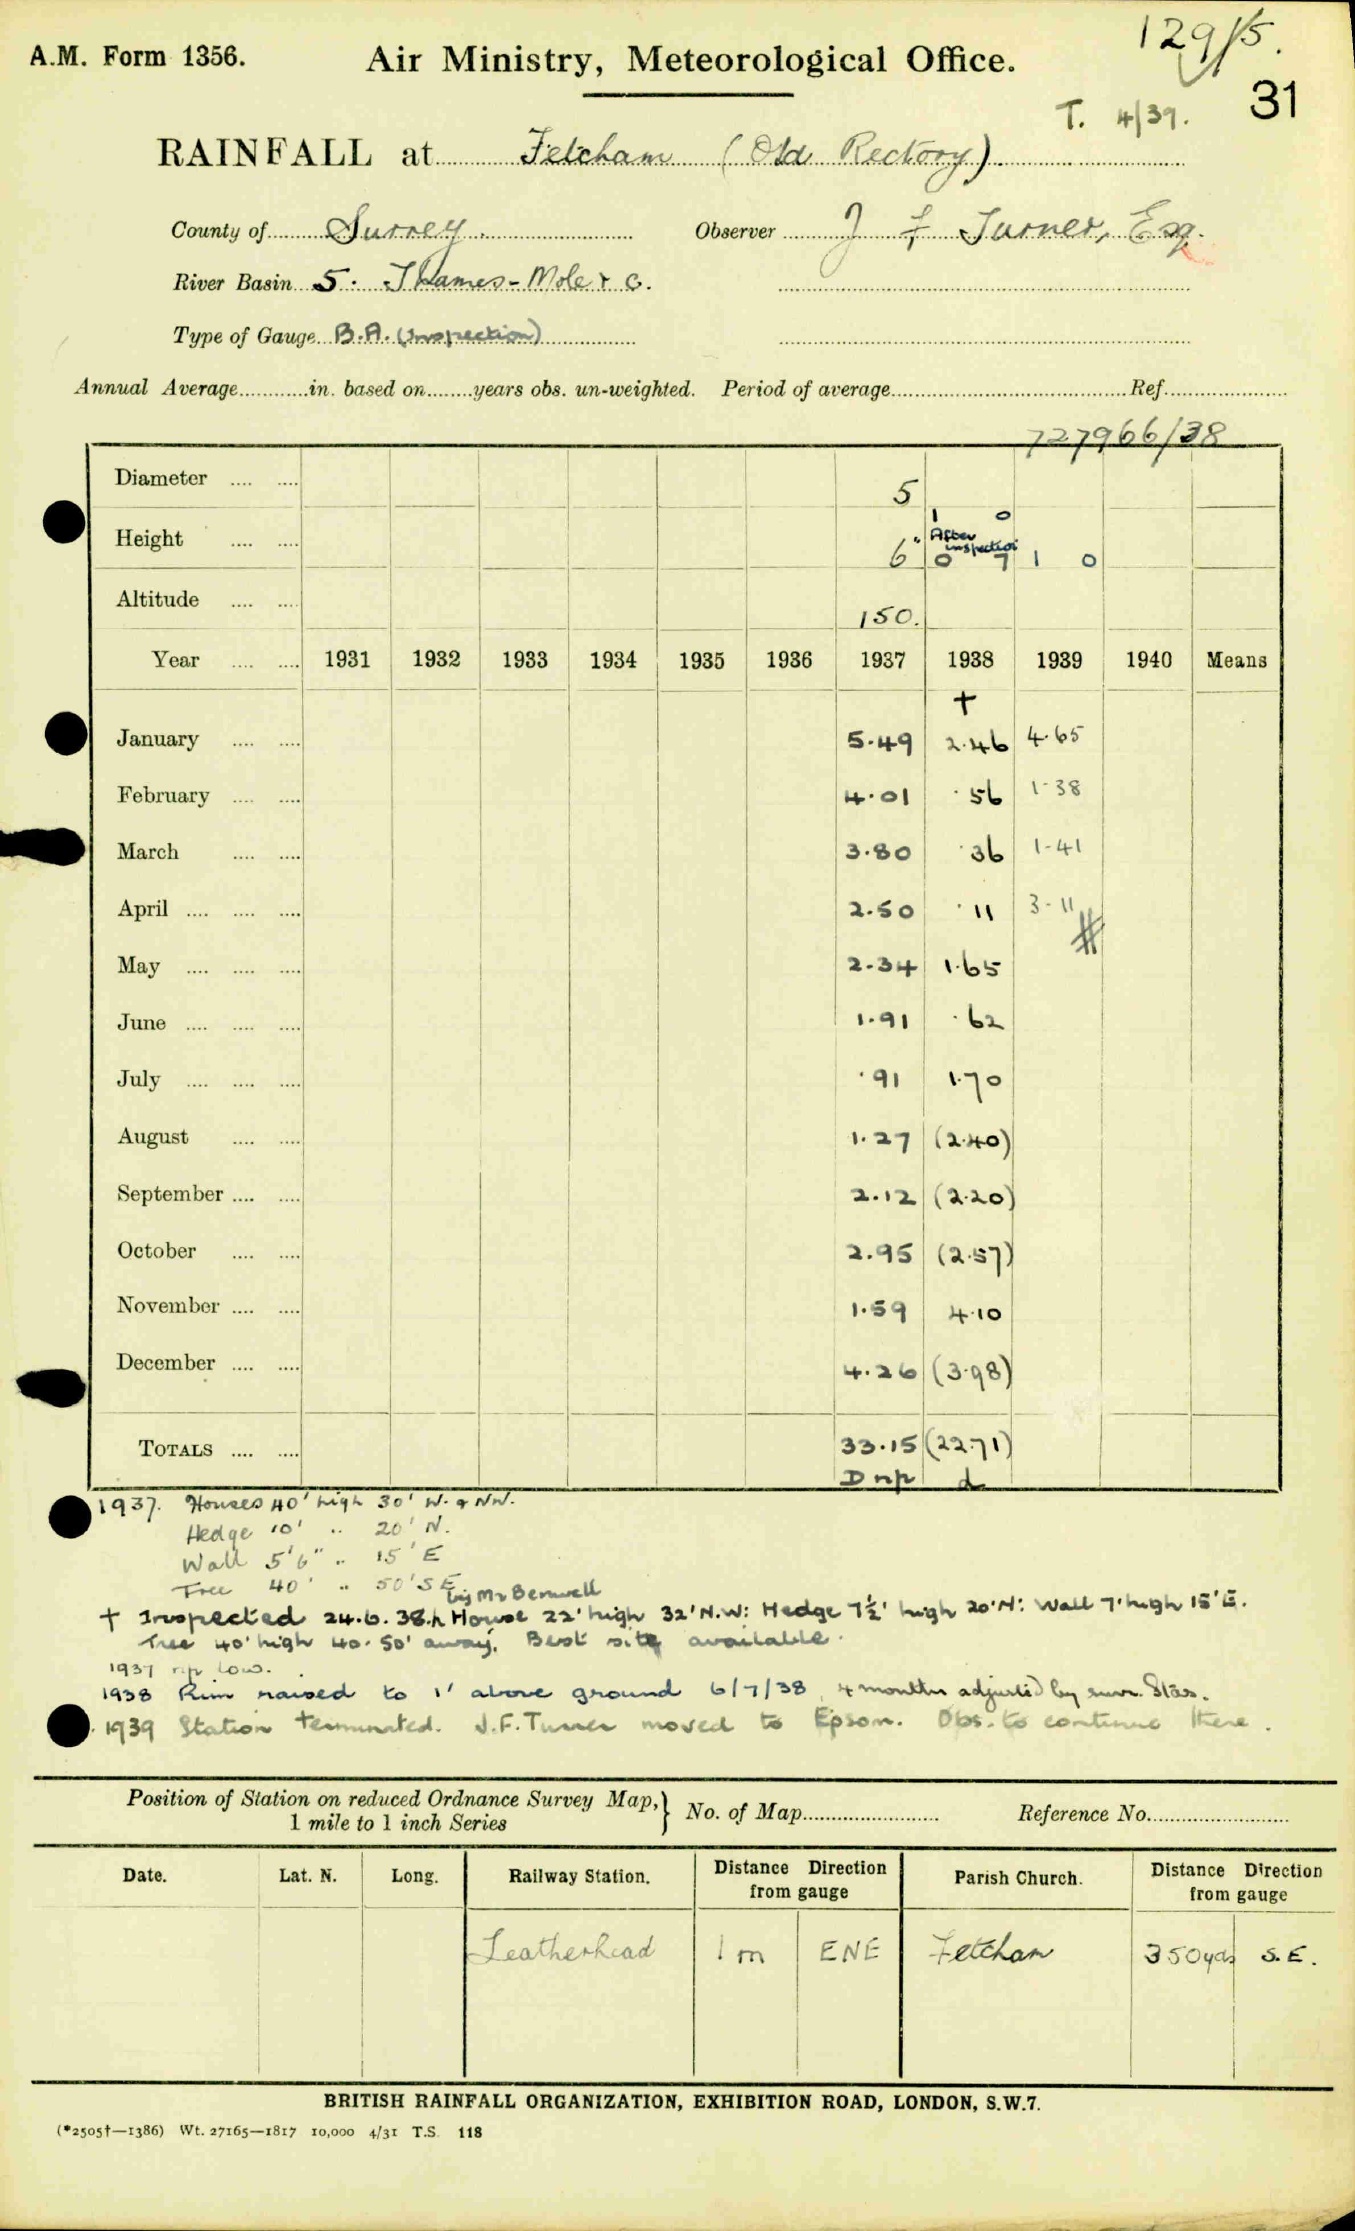 129/5.
A.M. Form 1356. Air Ministry, Meteorological Office.
31
T. 4/39.
RAINFALL at Fetcham (Old Rectory).
County of Surrey. Observer J F Turner, Esq.
River Basin 5. Thames - Mole & c.
Type of Gauge B.A. (Inspection)
Annual Average............in. based on........years obs. un-weighted. Period of average........................................Ref......................
727966/38
Diameter .... .... 5
1 0
Height .... .... 6" After inspection 0 7 1 0
Altitude .... .... 150.
Year .... .... 1931 1932 1933 1934 1935 1936 1937 1938 1939 1940 Means
†
January .... .... 5.49 2.46 4.65
February .... .... 4.01 .56 1.38
March .... .... 3.80 .36 1.41
April .... .... .... 2.50 .11 3.11
May .... .... .... 2.34 1.65
June .... .... .... 1.91 .62
July .... .... .... .91 1.70
August .... .... 1.27 (2.40)
September .... .... 2.12 (2.20)
October .... .... 2.95 (2.57)
November .... .... 1.59 4.10
December .... .... 4.26 (3.98)
TOTALS .... .... 33.15 (22.71)
D np d
1937. Houses 40' high 30' W. & NW.
Hedge 10' " 20' N.
Wall 5'6" " 15' E
Tree 40' " 50' SE
by Mr Benwell
† Inspected 24.6.38. House 22' high 32' N.W: Hedge 7½' high 20' N: Wall 7' high 15' E.
Tree 40' high 40-50' away. Best site available.
1937 np low.
1938 Rim raised to 1' above ground 6/7/38, 4 months adjusted by surr. Stas.
1939 Station terminated. J.F. Turner moved to Epsom. Obs. to continue there.
Position of Station on reduced Ordnance Survey Map,} No. of Map........................ Reference No.........................
1 mile to 1 inch Series
Date. Lat. N. Long. Railway Station. Distance Direction from gauge Parish Church. Distance Direction from gauge
Leatherhead 1 m ENE Fetcham 350yds S.E.
BRITISH RAINFALL ORGANIZATION, EXHIBITION ROAD, LONDON, S.W.7.
(*2505†—1386) Wt. 27165—1817 10,000 4/31 T.S. 118